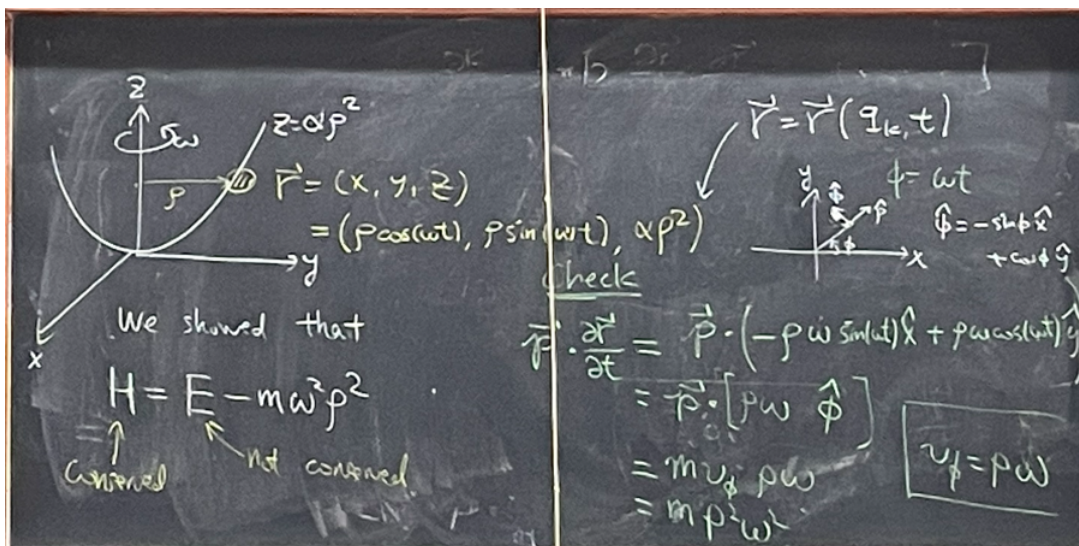 z
ω
z=αρ²
ρ
r⃗ = (x, y, z)
= (ρcos(ωt), ρsin(ωt), αρ²)
y
x
We showed that
H = E − mω²ρ²
conserved
not conserved
r⃗ = r⃗(q_k, t)
ϕ = ωt
y
ϕ̂
ρ̂
ϕ
x
ϕ̂ = −sinϕ x̂
+ cosϕ ŷ
Check
p⃗ · ∂r⃗/∂t = p⃗ · (−ρω sin(ωt) x̂ + ρωcos(ωt) ŷ
= p⃗ · [ρω ϕ̂]
= m v_ϕ ρω
= mρ²ω²
v_ϕ = ρω